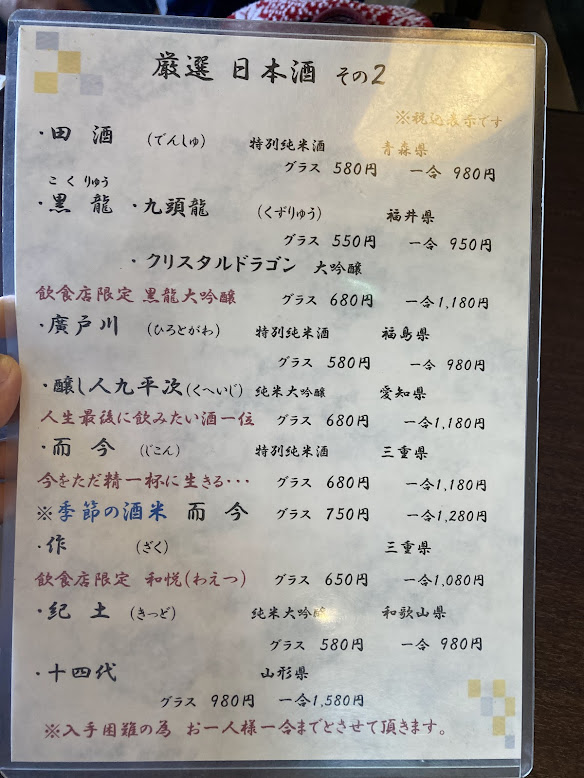 厳選 日本酒 その2
※税込表示です
・田 酒 (でんしゅ) 特別純米酒 青森県
グラス 580円 一合 980円
こくりゅう
・黒 龍 ・九頭龍 (くずりゅう) 福井県
グラス 550円 一合 950円
・クリスタルドラゴン 大吟醸
飲食店限定 黒龍大吟醸 グラス 680円 一合1,180円
・廣戸川 (ひろとがわ) 特別純米酒 福島県
グラス 580円 一合 980円
・醸し人九平次(くへいじ) 純米大吟醸 愛知県
人生最後に飲みたい酒一位 グラス 680円 一合1,180円
・而 今 (じこん) 特別純米酒 三重県
今をただ精一杯に生きる・・・ グラス 680円 一合1,180円
※季節の酒米 而 今 グラス 750円 一合1,280円
・作 (ざく) 三重県
飲食店限定 和悦(わえつ) グラス 650円 一合1,080円
・紀 土 (きっど) 純米大吟醸 和歌山県
グラス 580円 一合 980円
・十四代 山形県
グラス 980円 一合1,580円
※入手困難の為 お一人様一合までとさせて頂きます。